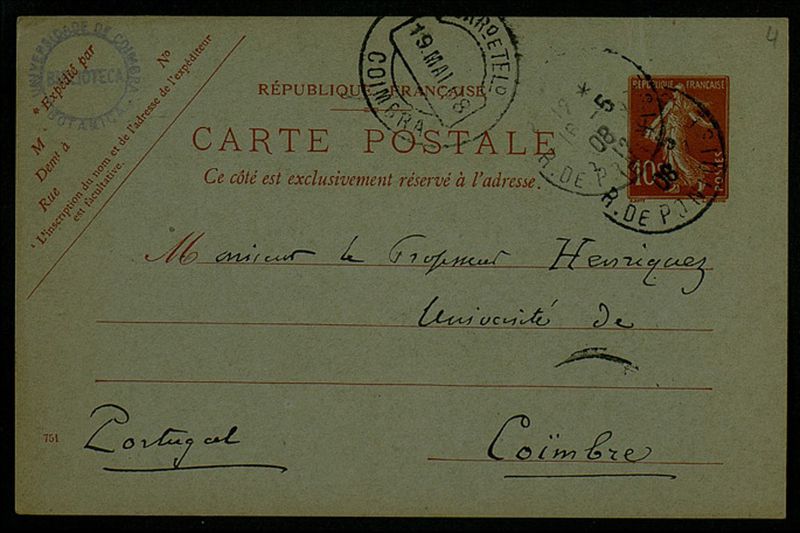 UNIVERSIDADE DE COIMBRA
BIBLIOTECA
BOTANICA
* Expédié par
No
M
Demt à
Rue
* L'inscription du nom et de l'adresse de l'expéditeur
est facultative.
19. MAI
8
COIMBRA
RÉPUBLIQUE FRANÇAISE
CARTE POSTALE
Ce côté est exclusivement réservé à l'adresse.
08
R. DE
08
R. DE
RÉPUBLIQUE FRANÇAISE
10
POSTES
4
Monsieur le Professeur Henriquez
Université de
Portugal
Coïmbre
751